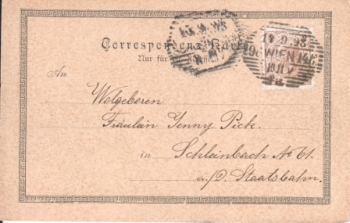 Correspondenz-Karte
Nur für
An
Wolgeboren
Fräulein Jenny Pick
in
Schleinbach No 61.
a./D. Staatsbahn.
WIEN